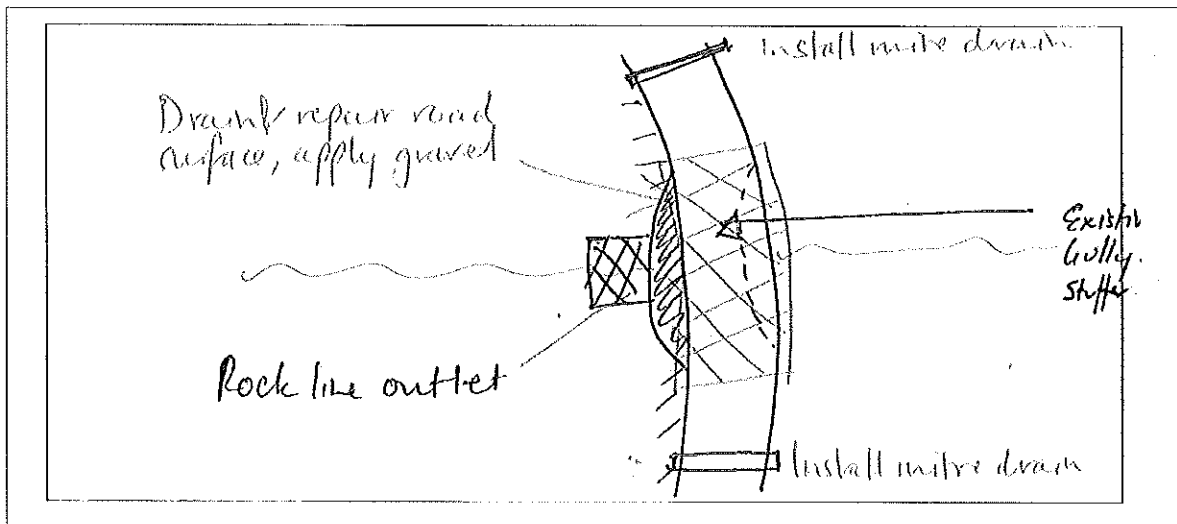 Install mitre drain
Drain & repair road
surface, apply gravel
Existin
Gully
Stuffer
Rock line outlet
Install mitre drain